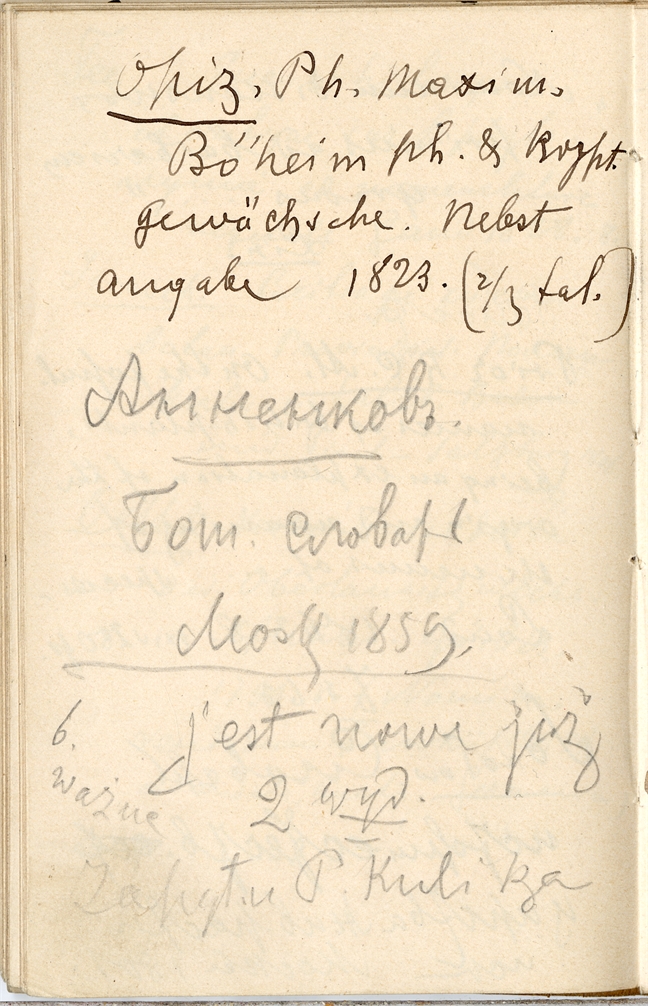 Opiz, Ph. Maxim.
Böheim ph. & krypt.
gewächsche. Nebst
angabe 1823. (2/3 tal.)
Анненковъ.
Бот. словарь
Mosk 1859.
6. jest nowe już
ważne 2 wyd.
Zapyt.u P. Kulika